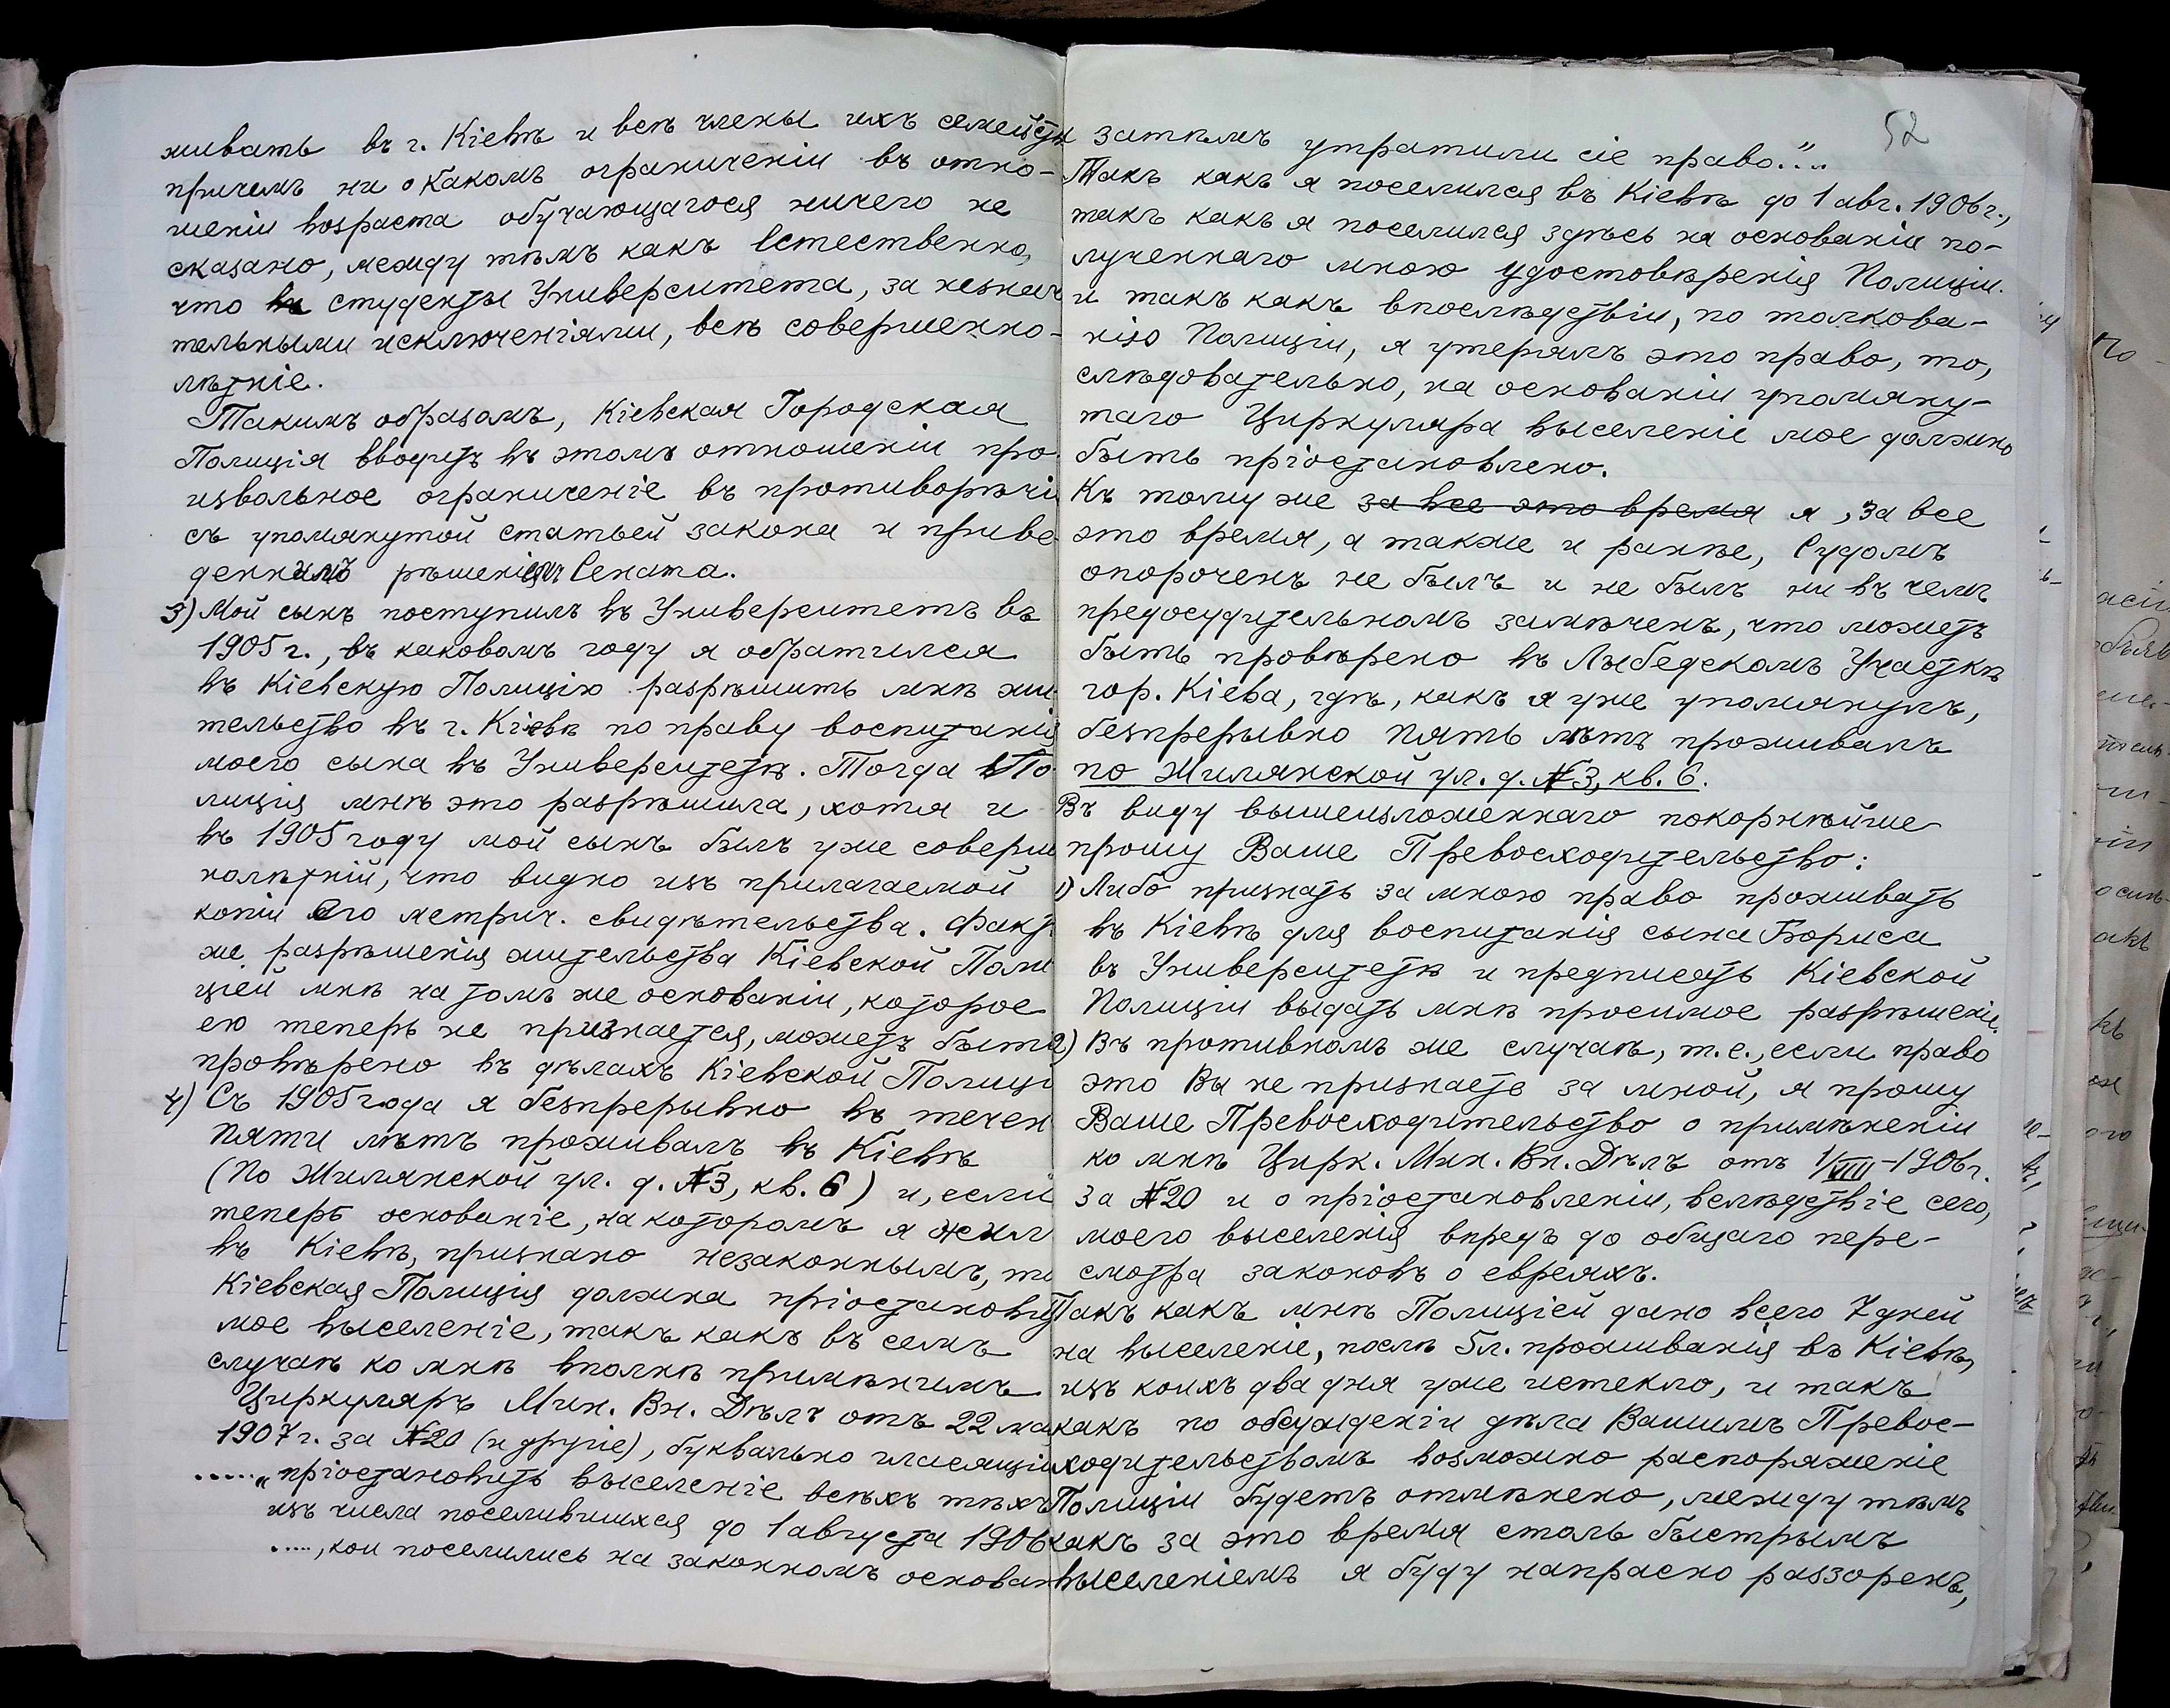 живать въ г. Кіевѣ и всѣ члены ихъ семейств
причемъ ни о какомъ ограниченіи въ отно-
шеніи возраста обучающагося ничего не
сказано, между тѣмъ какъ естественно,
что студенты Университета, за незнач
тельными исключеніями, всѣ совершенно-
лѣтніе.
Такимъ образомъ, Кіевская Городская
Полиція вводитъ въ этомъ отношеніи про
извольное ограниченіе въ противорѣчі
съ упомянутой статьей закона и приве
деннымъ рѣшеніемъ Сената.
3) Мой сынъ поступилъ въ Университетъ въ
1905 г., въ каковомъ году я обратился
въ Кіевскую Полицію разрѣшить мнѣ жи
тельство въ г. Кіевѣ по праву воспитанія
моего сына въ Университетѣ. Тогда По
лиція мнѣ это разрѣшила, хотя и
въ 1905 году мой сынъ былъ уже соверше
нолѣтній, что видно изъ прилагаемой
копіи его метрич. свидѣтельства. Фактъ
же разрѣшенія жительства Кіевской Поли
ціей мнѣ на томъ же основаніи, которое
ею теперь не признается, можетъ быть
провѣрено въ дѣлахъ Кіевской Полиціи
4) Съ 1905 года я безпрерывно въ течен
пяти лѣтъ проживалъ въ Кіевѣ
(по Жилянской ул. д. №3, кв. 6) и, если
теперь основаніе, на которомъ я жил
въ Кіевѣ, признано незаконнымъ, то
Кіевская Полиція должна пріостановить
мое выселеніе, такъ какъ въ семъ
случаѣ ко мнѣ вполнѣ примѣнимъ
Циркуляръ Мин. Вн. Дѣлъ отъ 22 ма
1907 г. за №20 (и другіе), буквально гласящій
....."пріостановить выселеніе всѣхъ тѣхъ
изъ числа поселившихся до 1 августа 1906
....., кои поселились на законномъ основан
52
затѣмъ утратили сіе право."..
Такъ какъ я поселился въ Кіевѣ до 1 авг. 1906 г.,
такъ какъ я поселился здѣсь на основаніи по-
лученнаго мною удостовѣренія Полиціи.
и такъ какъ впослѣдствіи, по толкова-
нію Полиціи, я утерялъ это право, то,
слѣдовательно, на основаніи упомяну-
таго Циркуляра выселеніе мое должно
быть пріостановлено.
Къ тому же за все это время я, за все
это время, а также и ранѣе, Судомъ
опороченъ не былъ и не былъ ни въ чемъ
предосудительномъ замѣченъ, что можетъ
быть провѣрено въ Лыбедскомъ Участкѣ
гор. Кіева, гдѣ, какъ я уже упомянулъ,
безпрерывно пять лѣтъ проживалъ
по Жилянской ул. д. №3, кв. 6.
Въ виду вышеизложеннаго покорнѣйше
прошу Ваше Превосходительство:
1) Либо признать за мною право проживать
въ Кіевѣ для воспитанія сына Бориса
въ Университетѣ и предписать Кіевской
Полиціи выдать мнѣ просимое разрѣшеніе.
2) Въ противномъ же случаѣ, т.е., если право
это Вы не признаете за мной, я прошу
Ваше Превосходительство о примѣненіи
ко мнѣ Цирк. Мин. Вн. Дѣлъ отъ 1/VIII-1906 г.
за №20 и о пріостановленіи, вслѣдствіе сего,
моего выселенія впредь до общаго пере-
смотра законовъ о евреяхъ.
Такъ какъ мнѣ Полиціей дано всего 7 дней
на выселеніе, послѣ 5 л. проживанія въ Кіевѣ,
изъ коихъ два дня уже истекло, и такъ
какъ по обсужденіи дѣла Вашимъ Превос-
ходительствомъ возможно распоряженіе
Полиціи будетъ отмѣнено, между тѣмъ
какъ за это время столь быстрымъ
выселеніемъ я буду напрасно раззоренъ,